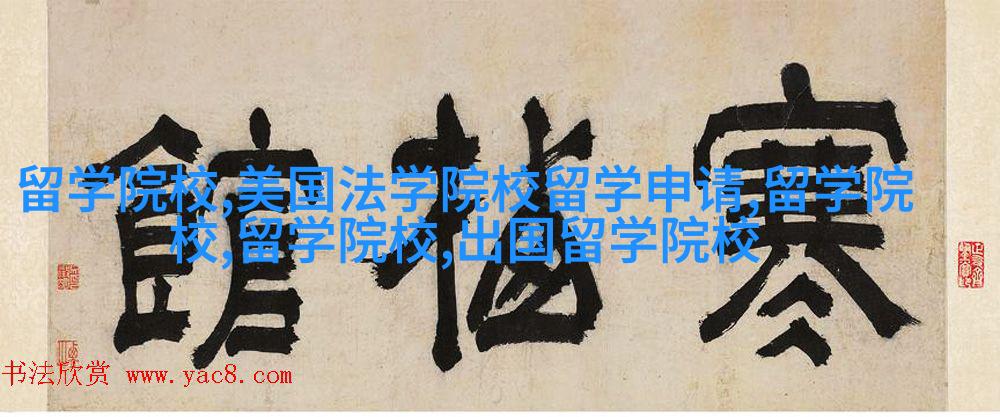 寒 館
留学院校,美国法学院校留学申请,留学院
校,留学院校,出国留学院校
书法欣赏 www.yac8.com